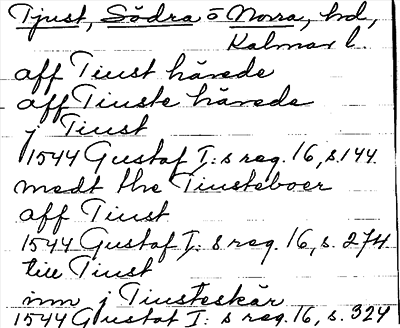 Tjust, Södra o Norra, hd,
Kalmar l.
aff Tiust härede
aff Tiuste härede
j Tiust
1544 Gustaf I:s reg. 16, s. 144
medt the Tiusteboer
aff Tiust
1544 Gustaf I:s reg. 16, s. 274
till Tiust
inn j Tiusteskär
1544 Gustaf I:s reg. 16, s. 324